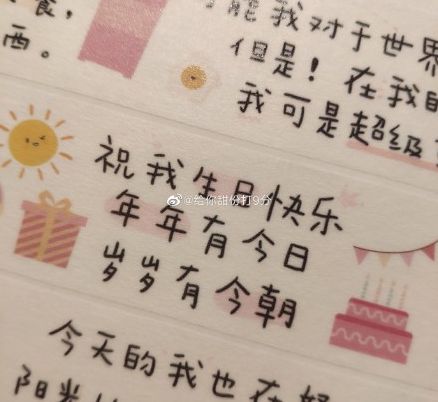 食,
西。
可能我对于世界
但是!在我
我可是超级
祝我生日快乐
年年有今日
岁岁有今朝
@给你甜份打9分
今天的我也在
阳光